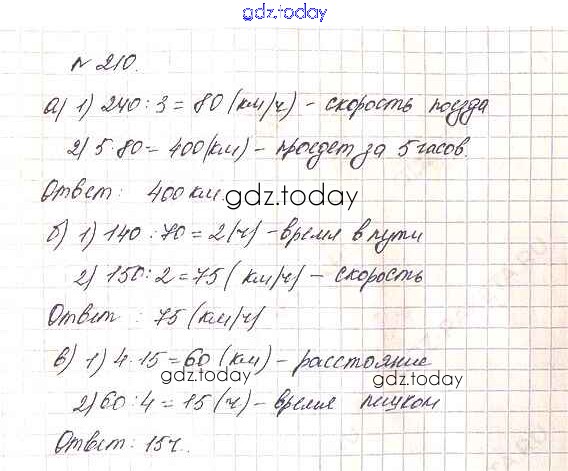 gdz.today
№ 210.
а) 1) 240 : 3 = 80 (км/ч) - скорость поезда
2) 5·80 = 400 (км) - проедет за 5 часов.
Ответ: 400 км.
gdz.today
б) 1) 140 : 70 = 2 (ч) - время в пути
2) 150 : 2 = 75 (км/ч) - скорость
Ответ: 75 (км/ч)
в) 1) 4·15 = 60 (км) - расстояние
gdz.today gdz.today
2) 60 : 4 = 15 (ч) - время пешком
Ответ: 15 ч.